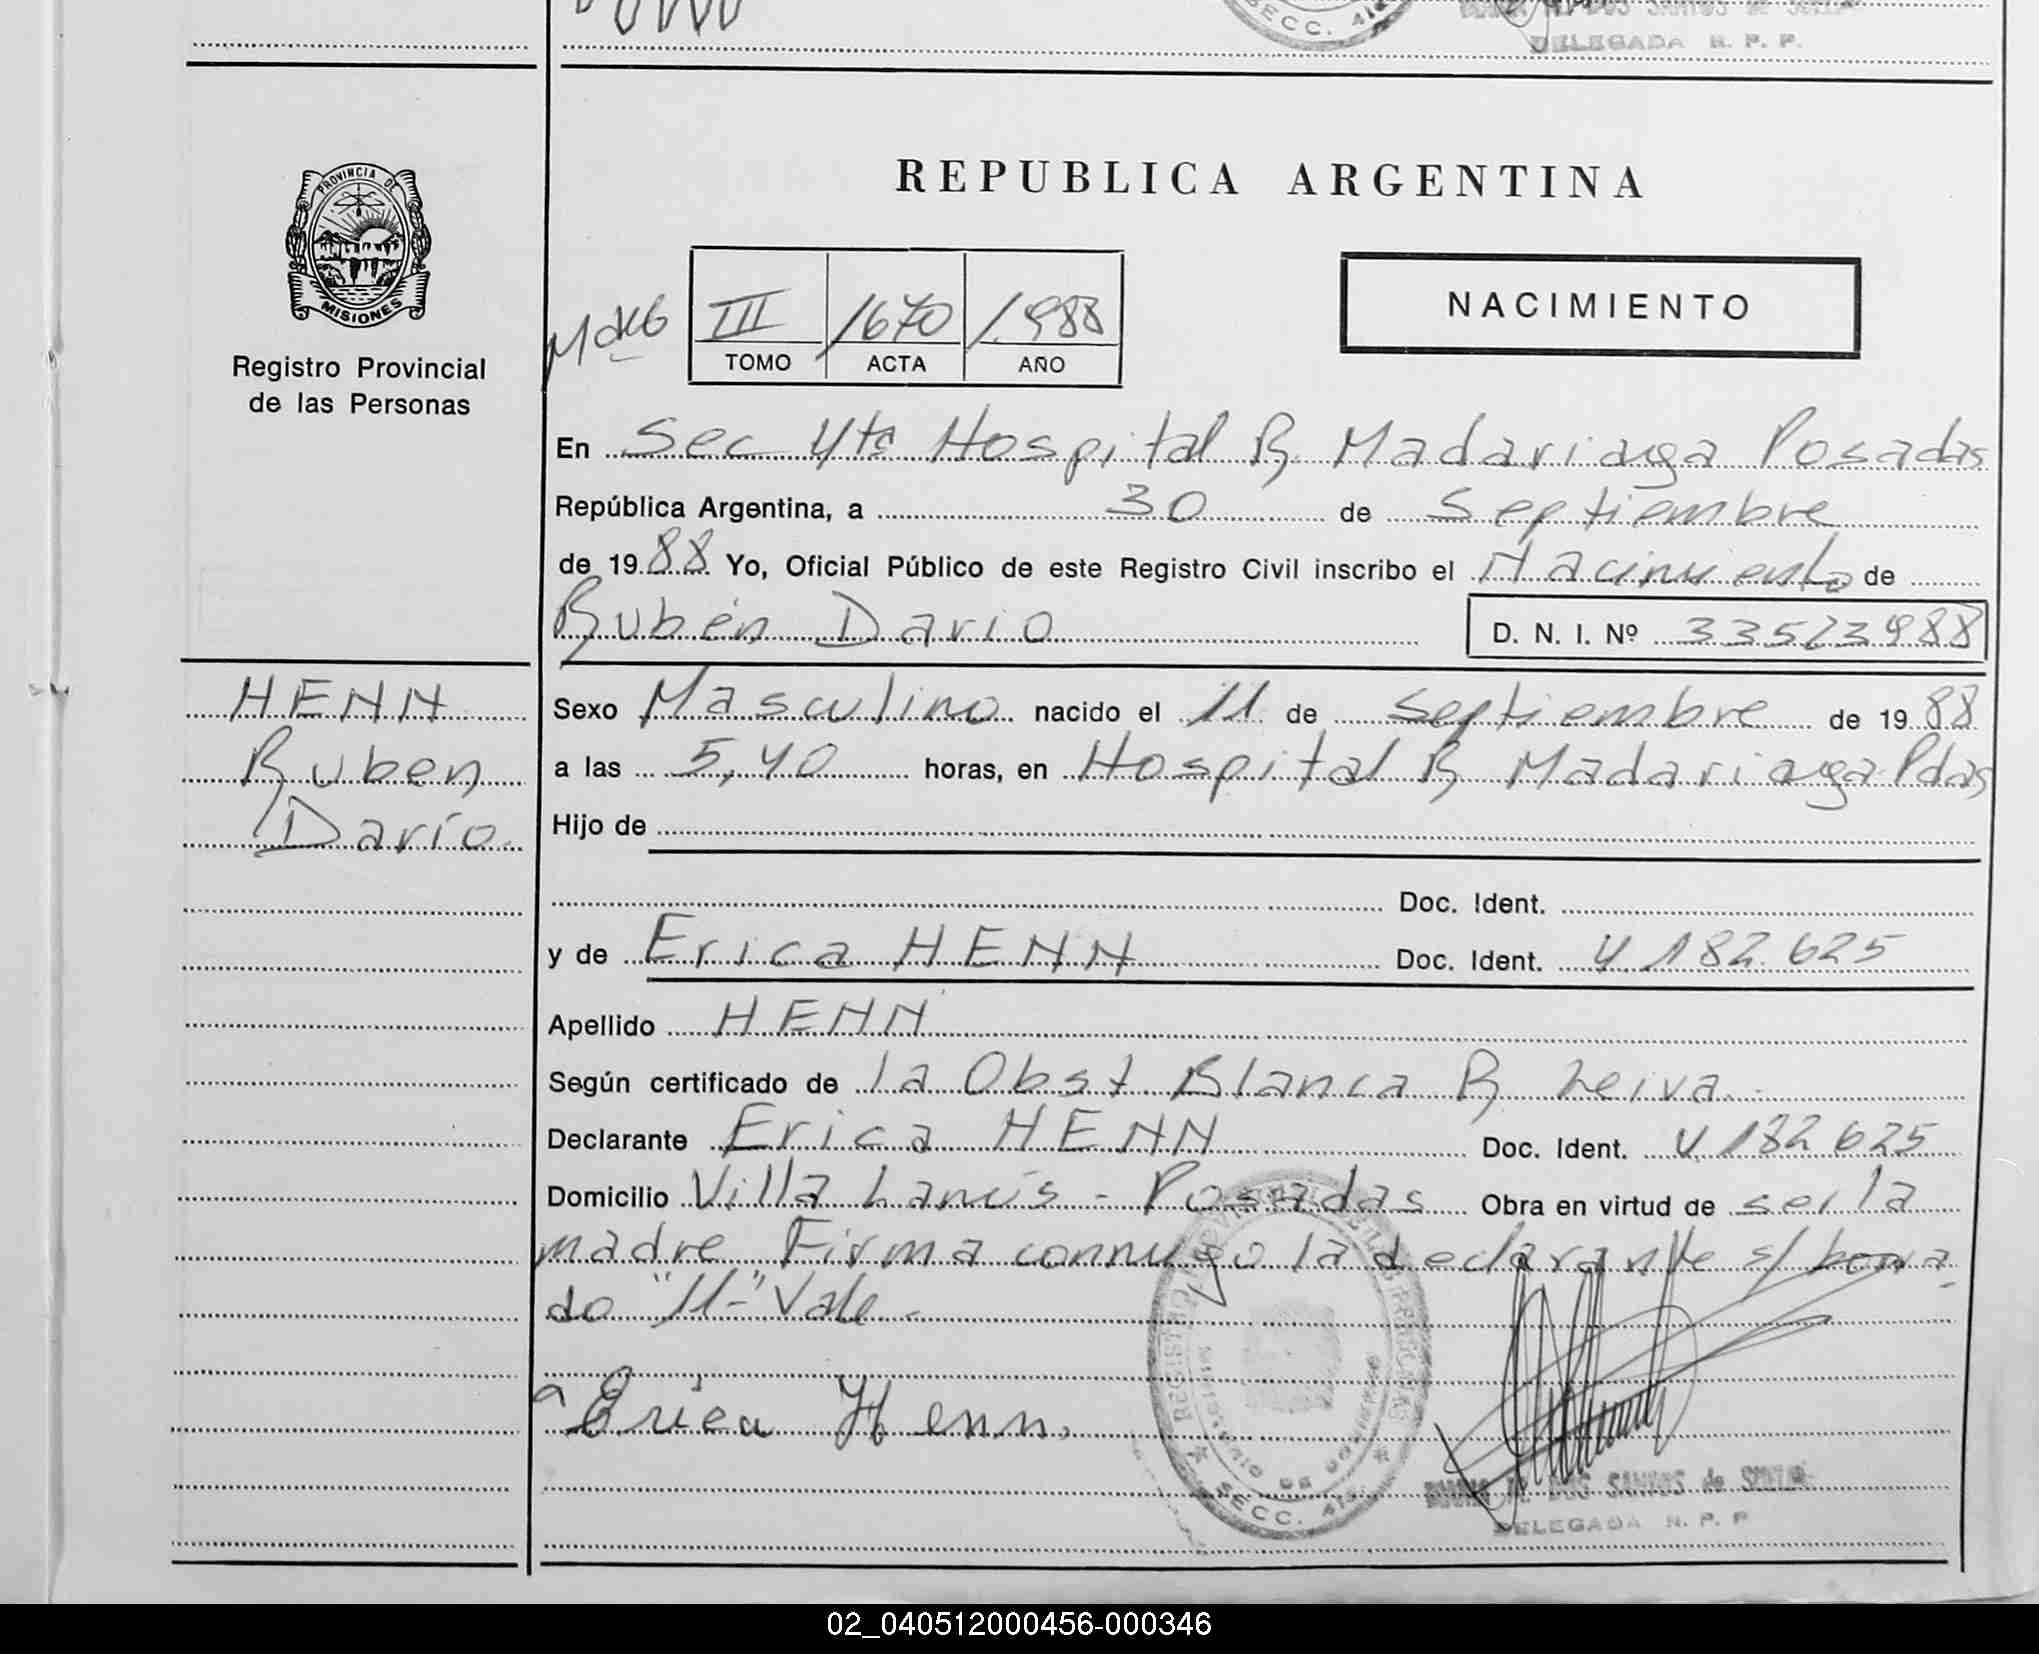 DELEGADA R. P. P.
SECC. 4ta
PROVINCIA DE
MISIONES
Registro Provincial
de las Personas
REPUBLICA ARGENTINA
III 1670 1.988
TOMO ACTA AÑO
NACIMIENTO
En Sec 4ta Hospital R. Madariaga Posadas
República Argentina, a 30 de Septiembre
de 1988 Yo, Oficial Público de este Registro Civil inscribo el Nacimiento de
Rubén Dario
D. N. I. Nº 33523988
HENN
Ruben
Darío.
Sexo Masculino nacido el 11 de Septiembre de 1988
a las 5,40 horas, en Hospital R Madariaga Pdas
Hijo de
Doc. Ident.
y de Erica HENN Doc. Ident. 4.182.625
Apellido HENN
Según certificado de la Obst Blanca R Leiva.
Declarante Erica HENN Doc. Ident. 4.182.625
Domicilio Villa Lanús - Posadas Obra en virtud de ser la
madre Firma conmigo la declarante s/borra
do "11-" Vale-
Erica Henn.
REGISTRO PROVINCIAL DE LAS PERSONAS
MINISTERIO DE GOBIERNO
SECC. 4ta
DOS SANTOS de
DELEGADA R. P. P
02_040512000456-000346